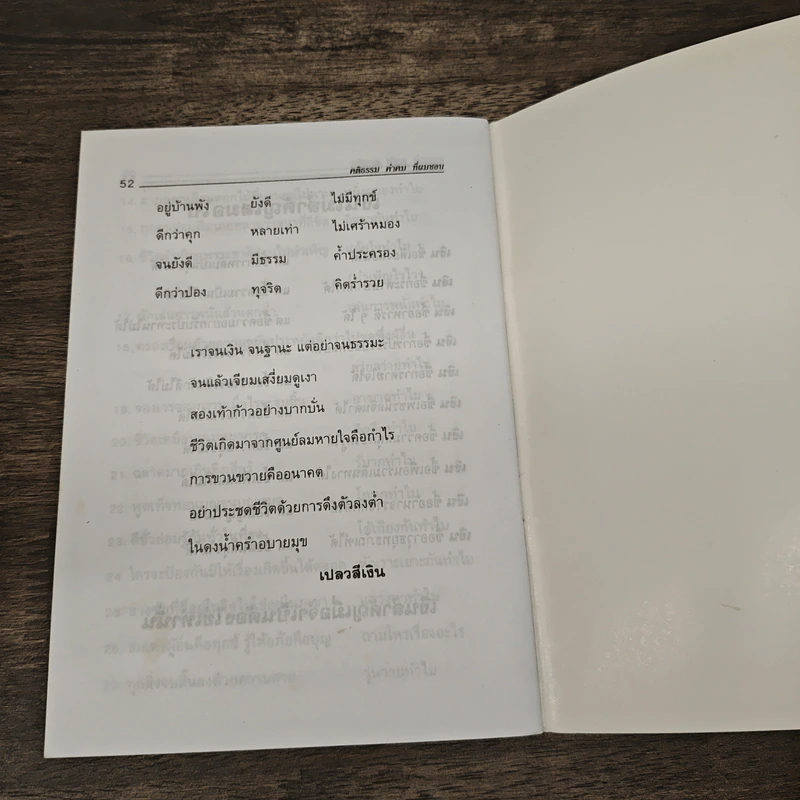 คติธรรม คำคม ที่ผมชอบ
52
อยู่บ้านพัง ยังดี ไม่มีทุกข์
ดีกว่าคุก หลายเท่า ไม่เศร้าหมอง
จนยังดี มีธรรม ค้ำประครอง
ดีกว่าปอง ทุจริต คิดร่ำรวย
เราจนเงิน จนฐานะ แต่อย่าจนธรรมะ
จนแล้วเจียมเสงี่ยมดูเงา
สองเท้าก้าวอย่างบากบั่น
ชีวิตเกิดมาจากศูนย์ลมหายใจคือกำไร
การขวนขวายคืออนาคต
อย่าประชดชีวิตด้วยการดึงตัวลงต่ำ
ในดงน้ำครำอบายมุข
เปลวสีเงิน